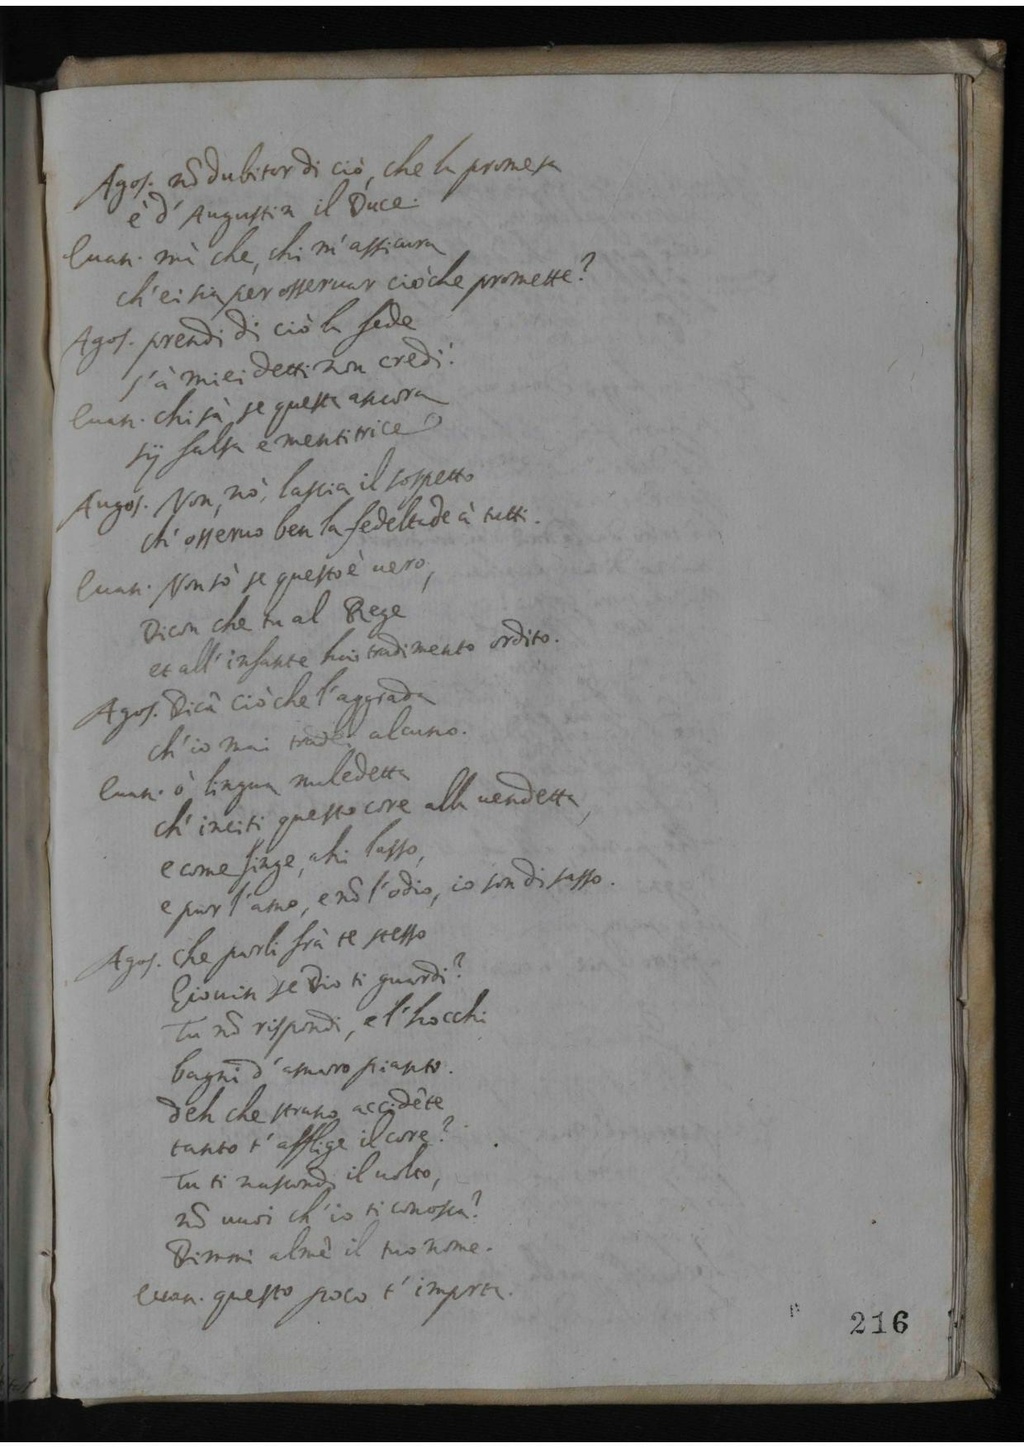 Agos. nō dubitar di ciò, che la promessa
è d' Augustin il Duce.
Euan. mà che, chi m'assicura
ch'ei sia per osseruar ciò che promette?
Agos. prendi di ciò la fede
s'à miei detti non credi.
Euan. chi sà se questa ancora
sij falsa e mentitrice?
Augos. Non, nò, lascia il sospetto
ch' osseruo ben la fedeltade à tutti.
Euan. Non sò se questo è uero,
Dicon che tu al Rege
et all' infante hai tradimento ordito.
Agos. Dicā ciò che l'aggrada
ch'io mai tradij alcuno.
Euan. ò lingua maledetta
ch' inciti questo core alla uendetta,
e come finge, ahi lasso,
e pur l'amo, e nō l'odio, io son di sasso.
Agos. Che parli frà te stesso
Giouin se Dio ti guardi?
Tu nō rispondi, e l'hocchi
bagni d'amaro pianto.
deh che strano accidēte
tanto t'afflige il core?
Tu ti nascondi il uolto,
nō uuoi ch'io ti conosca?
Dimmi almē il tuo nome.
Euan. questo poco t'importa.
216